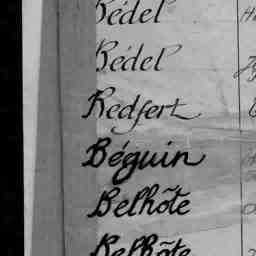 Bédel
Bédel
Bedfert
Béguin
Belhôte
Belhôte